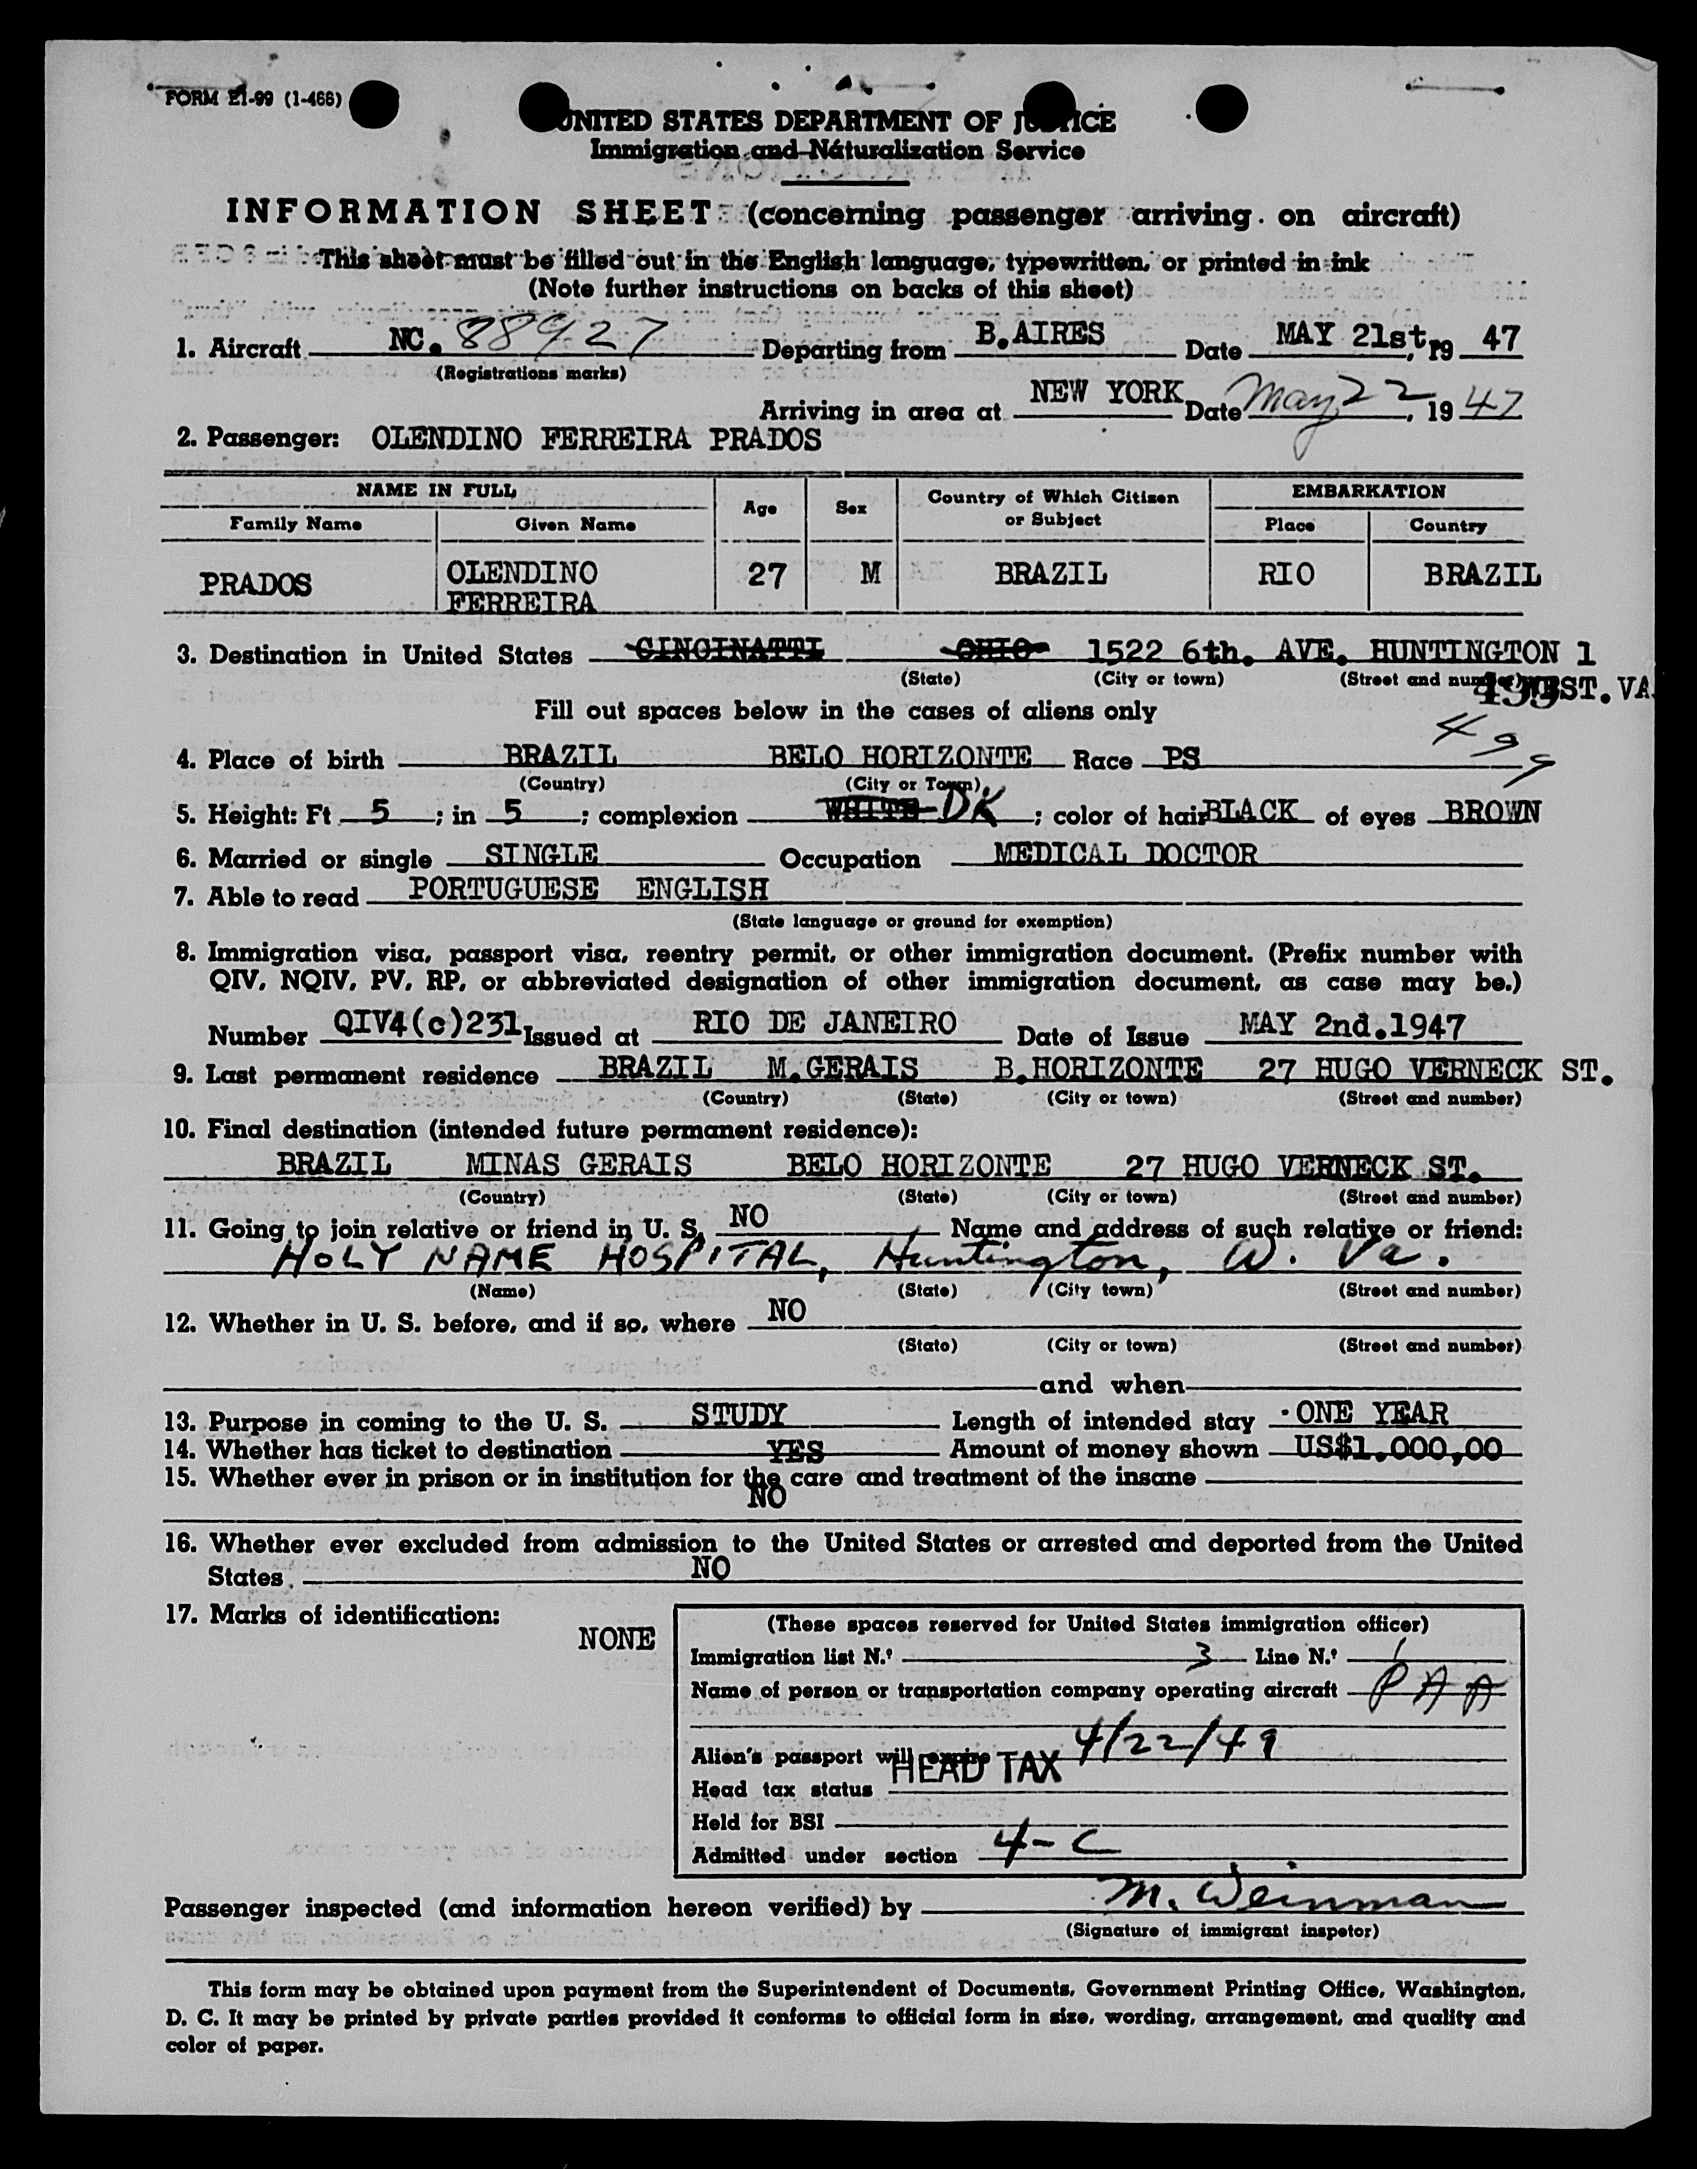 FORM EI-99 (1-466)
UNITED STATES DEPARTMENT OF JUSTICE
Immigration and Naturalization Service
INFORMATION SHEET (concerning passenger arriving on aircraft)
This sheet must be filled out in the English language, typewritten, or printed in ink
(Note further instructions on backs of this sheet)
1. Aircraft NC. 88927 Departing from B.AIRES Date MAY 21st, 19 47
(Registrations marks)
Arriving in area at NEW YORK Date May 22, 19 47
2. Passenger: OLENDINO FERREIRA PRADOS
NAME IN FULL Age Sex Country of Which Citizen or Subject EMBARKATION
Family Name Given Name Place Country
PRADOS OLENDINO FERREIRA 27 M BRAZIL RIO BRAZIL
3. Destination in United States CINCINATTI OHIO 1522 6th. AVE. HUNTINGTON 1
(State) (City or town) (Street and number) WEST.VA.
499
Fill out spaces below in the cases of aliens only
499
4. Place of birth BRAZIL BELO HORIZONTE Race PS
(Country) (City or Town)
5. Height: Ft 5 ; in 5 ; complexion WHITE DK ; color of hair BLACK of eyes BROWN
6. Married or single SINGLE Occupation MEDICAL DOCTOR
7. Able to read PORTUGUESE ENGLISH
(State language or ground for exemption)
8. Immigration visa, passport visa, reentry permit, or other immigration document. (Prefix number with
QIV, NQIV, PV, RP, or abbreviated designation of other immigration document, as case may be.)
Number QIV4(c)231 Issued at RIO DE JANEIRO Date of Issue MAY 2nd.1947
9. Last permanent residence BRAZIL M.GERAIS B.HORIZONTE 27 HUGO VERNECK ST.
(Country) (State) (City or town) (Street and number)
10. Final destination (intended future permanent residence):
BRAZIL MINAS GERAIS BELO HORIZONTE 27 HUGO VERNECK ST.
(Country) (State) (City or town) (Street and number)
11. Going to join relative or friend in U. S. NO Name and address of such relative or friend:
HOLY NAME HOSPITAL, Huntington, W. Va.
(Name) (State) (City town) (Street and number)
12. Whether in U. S. before, and if so, where NO
(State) (City or town) (Street and number)
and when
13. Purpose in coming to the U. S. STUDY Length of intended stay ONE YEAR
14. Whether has ticket to destination YES Amount of money shown US$1.000,00
15. Whether ever in prison or in institution for the care and treatment of the insane
NO
16. Whether ever excluded from admission to the United States or arrested and deported from the United
States NO
17. Marks of identification: NONE
(These spaces reserved for United States immigration officer)
Immigration list N.º 3 Line N.º 1
Name of person or transportation company operating aircraft PAA
Alien's passport will expire 4/22/49
HEAD TAX
Head tax status
Held for BSI
Admitted under section 4-C
Passenger inspected (and information hereon verified) by M. Weinman
(Signature of immigrant inspetor)
This form may be obtained upon payment from the Superintendent of Documents, Government Printing Office, Washington,
D. C. It may be printed by private parties provided it conforms to official form in size, wording, arrangement, and quality and
color of paper.